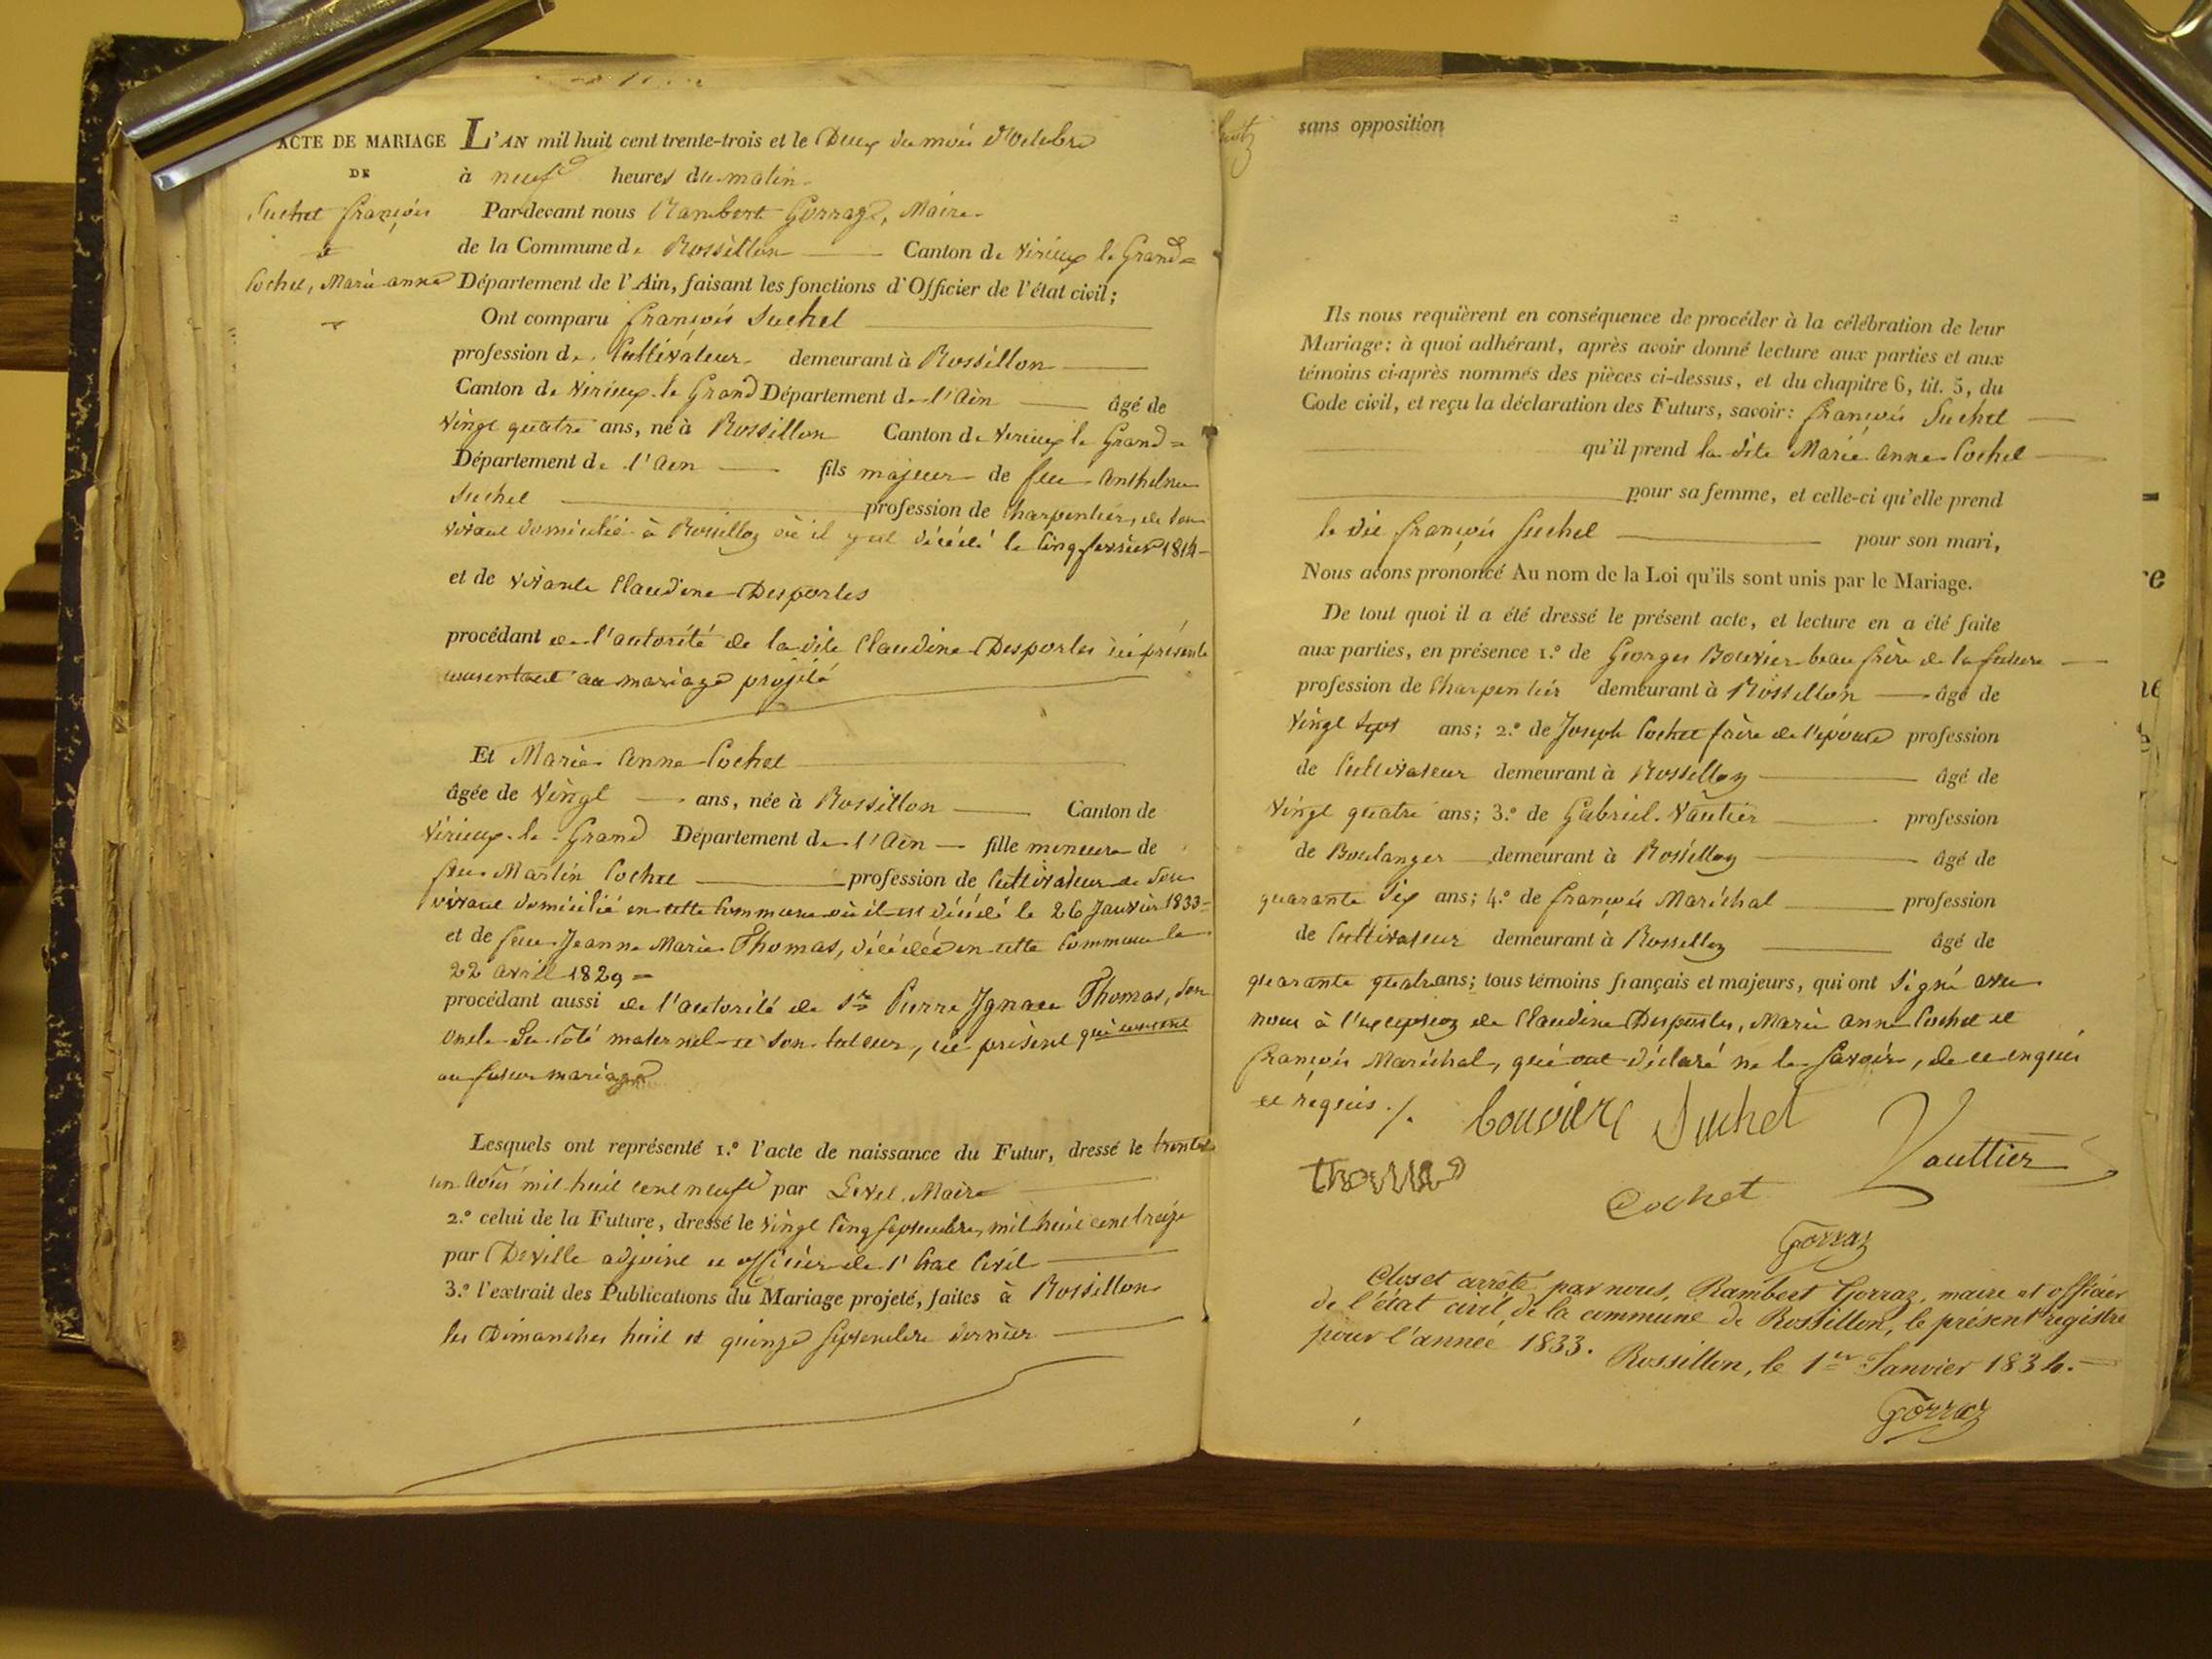 ACTE DE MARIAGE
DE
Suchet françois
et
Cochet, Marie anne
L'AN mil huit cent trente-trois et le Deux du mois d'Octobre
à neuf heures du matin
Pardevant nous Rambert Gorraz, Maire
de la Commune de Rossillon Canton de Virieux le Grand=
Département de l'Ain, faisant les fonctions d'Officier de l'état civil;
Ont comparu françois Suchet
profession de Cultivateur demeurant à Rossillon
Canton de Virieux le Grand Département de l'Ain âgé de
Vingt quatre ans, né à Rossillon Canton de Virieux le Grand=
Département de l'Ain fils majeur de feu Anthelme
Suchet profession de Charpentier, de son
vivant domicilié à Rossillon où il est décédé le Cinq février 1814
et de vivante Claudine Desportes
procédant de l'autorité de la dite Claudine Desportes ici présente
consentant au mariage projeté
Et Marie Anne Cochet
âgée de Vingt ans, née à Rossillon Canton de
Virieux le Grand Département de l'Ain fille mineure de
feu Martin Cochet profession de Cultivateur de son
vivant domicilié en cette Commune où il est décédé le 26 Janvier 1833=
et de feue Jeanne Marie Thomas, décédée en cette Commune le
22 avril 1829=
procédant aussi de l'autorité de Sr Pierre Ignace Thomas, son
oncle du côté maternel et son tuteur, ici présent qui consent
au futur mariage
Lesquels ont représenté 1.º l'acte de naissance du Futur, dressé le trente
un Août mil huit cent neuf par Maire
2.º celui de la Future, dressé le vingt Cinq Septembre, mil huit cent treize
par Deville adjoint et officier de l'Etat Civil
3.º l'extrait des Publications du Mariage projeté, faites à Rossillon
les Dimanches huit et quinze Septembre dernier
sans opposition
Ils nous requièrent en conséquence de procéder à la célébration de leur
Mariage: à quoi adhérant, après avoir donné lecture aux parties et aux
témoins ci-après nommés des pièces ci-dessus, et du chapitre 6, tit. 5, du
Code civil, et reçu la déclaration des Futurs, savoir: françois Suchet
qu'il prend la dite Marie Anne Cochet
pour sa femme, et celle-ci qu'elle prend
le dit françois Suchet pour son mari,
Nous avons prononcé Au nom de la Loi qu'ils sont unis par le Mariage.
De tout quoi il a été dressé le présent acte, et lecture en a été faite
aux parties, en présence 1.º de Georges Bouvier beau frère de la future
profession de Charpentier demeurant à Rossillon âgé de
Vingt Sept ans; 2.º de Joseph Cochet frère de l'épouse profession
de Cultivateur demeurant à Rossillon âgé de
Vingt quatre ans; 3.º de Gabriel Vautier profession
de Boulanger demeurant à Rossillon âgé de
quarante Six ans; 4.º de françois Maréchal profession
de Cultivateur demeurant à Rossillon âgé de
quarante quatre ans; tous témoins français et majeurs, qui ont Signé avec
nous à l'exception de Claudine Desportes, Marie Anne Cochet et
françois Maréchal, qui ont déclaré ne le Savoir, de ce enquis
et requis ./.
bouvier Suchet Vauttier
Thomas
Cochet
Gorraz
Clos et arrêté par nous, Rambert Gorraz, maire et officier
de l'état civil de la commune de Rossillon, le présent registre
pour l'année 1833. Rossillon, le 1er Janvier 1834.
Gorraz